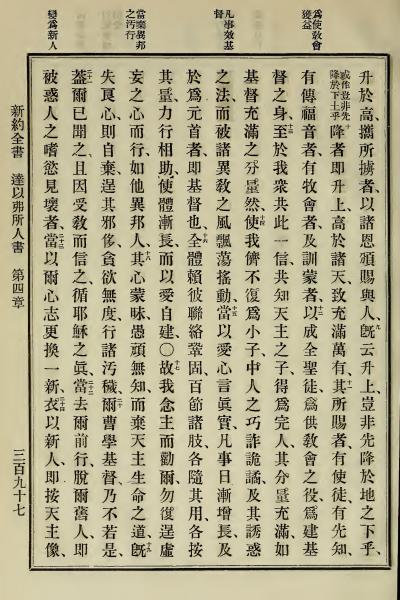 為使敎會
獲益
凡事效基
督
當棄異邦
之汚行
變為新人
升於高、攜所擄者、以諸恩頒賜與人、九既云升上、豈非先降於地之下乎、
或作豈非先降於下土乎
十降者即升上高於諸天、致充滿萬有、十一其所賜者、有使徒、有先知、
有傳福音者、有牧會者、及訓蒙者、十二以成全聖徒、爲供敎會之役、爲建基
督之身、十三至於我衆共此一信、共知天主之子、得爲完人、其分量充滿如
基督充滿之分量然、十四使我儕不復爲小子、中人之巧詐詭譎、及其誘惑
之法、而被諸異敎之風飄蕩搖動、十五當以愛心言眞實、凡事日漸增長、及
於爲元首者、即基督也、十六全體賴彼聯絡鞏固、百節諸肢、各隨其用、各按
其量、力行相助、使體漸長、而以愛自建、〇十七故我念主而勸爾、勿復逞虛
妄之心而行、如他異邦人、十八其心蒙昧、愚頑無知、而棄天主生命之道、十九旣
失良心、則自棄、逞其邪侈、貪欲無度、行諸汚穢、二十爾曹學基督、乃不若是、
二十一蓋爾已聞之、且因受敎而信之、循耶穌之眞、二十二當去爾前行、脫爾舊人、即
被惑人之嗜慾見壞者、二十三當以爾心志更換一新、二十四衣以新人、即按天主像、
新約全書 達以弗所人書 第四章
三百九十七